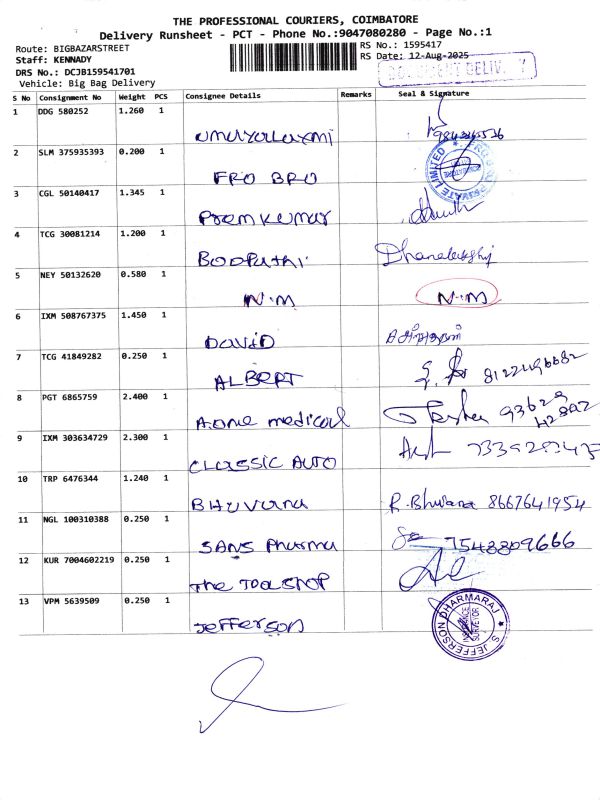 THE PROFESSIONAL COURIERS, COIMBATORE
Delivery Runsheet - PCT - Phone No.:9047080280 - Page No.:1
Route: BIGBAZARSTREET
RS No.: 1595417
Staff: KENNADY
RS Date: 12-Aug-2025
DRS No.: DCJB159541701
Vehicle: Big Bag Delivery
S No Consignment No Weight PCS Consignee Details Remarks Seal & Signature
1 DDG 580252 1.260 1
umayalaxmi
2 SLM 375935393 0.200 1
FRO BRO
PRIVATE LIMITED
3 CGL 50140417 1.345 1
Premkumar
4 TCG 30081214 1.200 1
Boopathi
5 NEY 50132620 0.580 1
N.M N.M
6 IXM 508767375 1.450 1
DAVID
7 TCG 41849282 0.250 1
ALBERT
8 PGT 6865759 2.400 1
A.one medical 93629
9 IXM 303634729 2.300 1
CLASSIC AUTO
10 TRP 6476344 1.240 1
BHUVANA R.Bhuvana 8667641954
11 NGL 100310388 0.250 1
SANS Pharma 7548809666
12 KUR 7004602219 0.250 1
The TOOLSHOP
13 VPM 5639509 0.250 1
Jefferson
S. JEFFERSON DHARMARAJ
INSURANCE
SURVEYOR